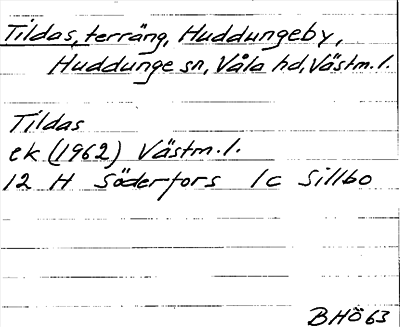 Tildas, terräng, Huddungeby,
Huddunge sn, Våla hd, Västm. l.
Tildas
ek (1962) Västm. l.
12 H Söderfors 1c Sillbo
BHÖ 63